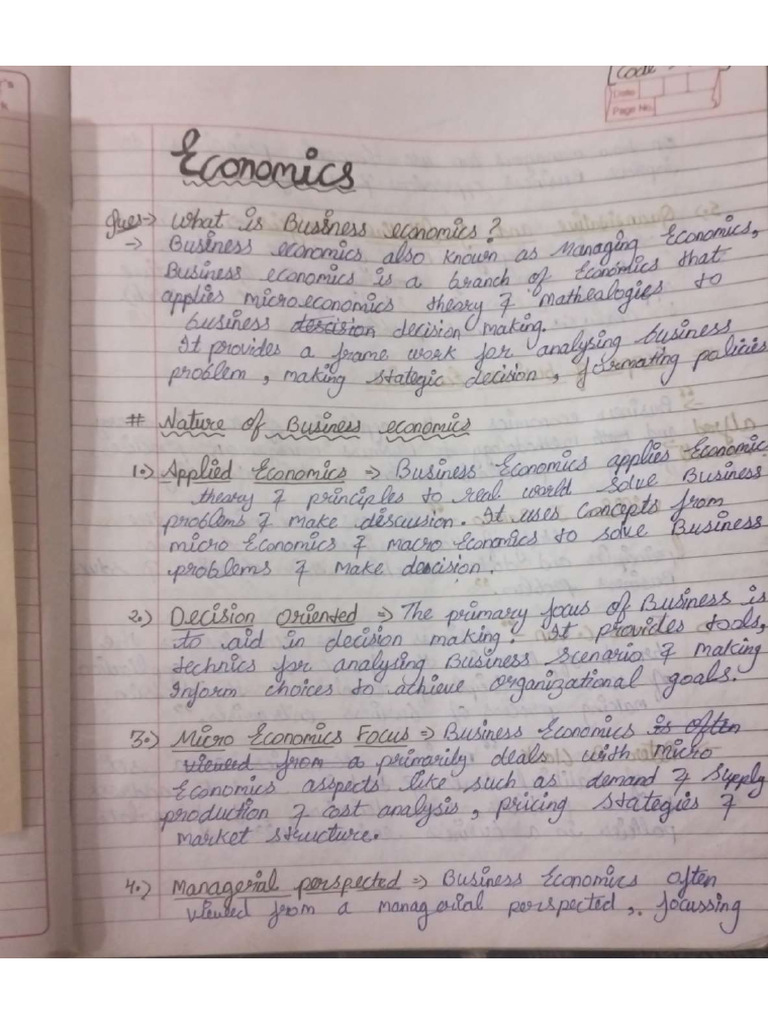 Code
Date
Page No.
Economics
Ques→ What is Business economics?
→ Business economics also known as Managing Economics,
Business economics is a branch of Economics that
applies microeconomics theory & mathealogies to
business descision decision making.
It provides a frame work for analysing business
problem, making stategic decision, formating policies
# Nature of Business economics
1.) Applied Economics ⇒ Business Economics applies Economic
theory & principles to real world solve Business
problems & make discussion. It uses concepts from
micro Economics & macro Economics to solve Business
problems & make decision.
2.) Decision Oriented ⇒ The primary focus of Business is
to aid in decision making. It provides tools,
technics for analysing Business Scenario & making
inform choices to achieve organizational goals.
3.) Micro Economics Focus ⇒ Business Economics is often
viewed from a primarily deals with micro
Economics asspects like such as demand & supply
production & cost analysis, pricing stategies &
market structure.
4.) Managerial perspected ⇒ Business Economics often
viewed from a managerial perspected, focussing